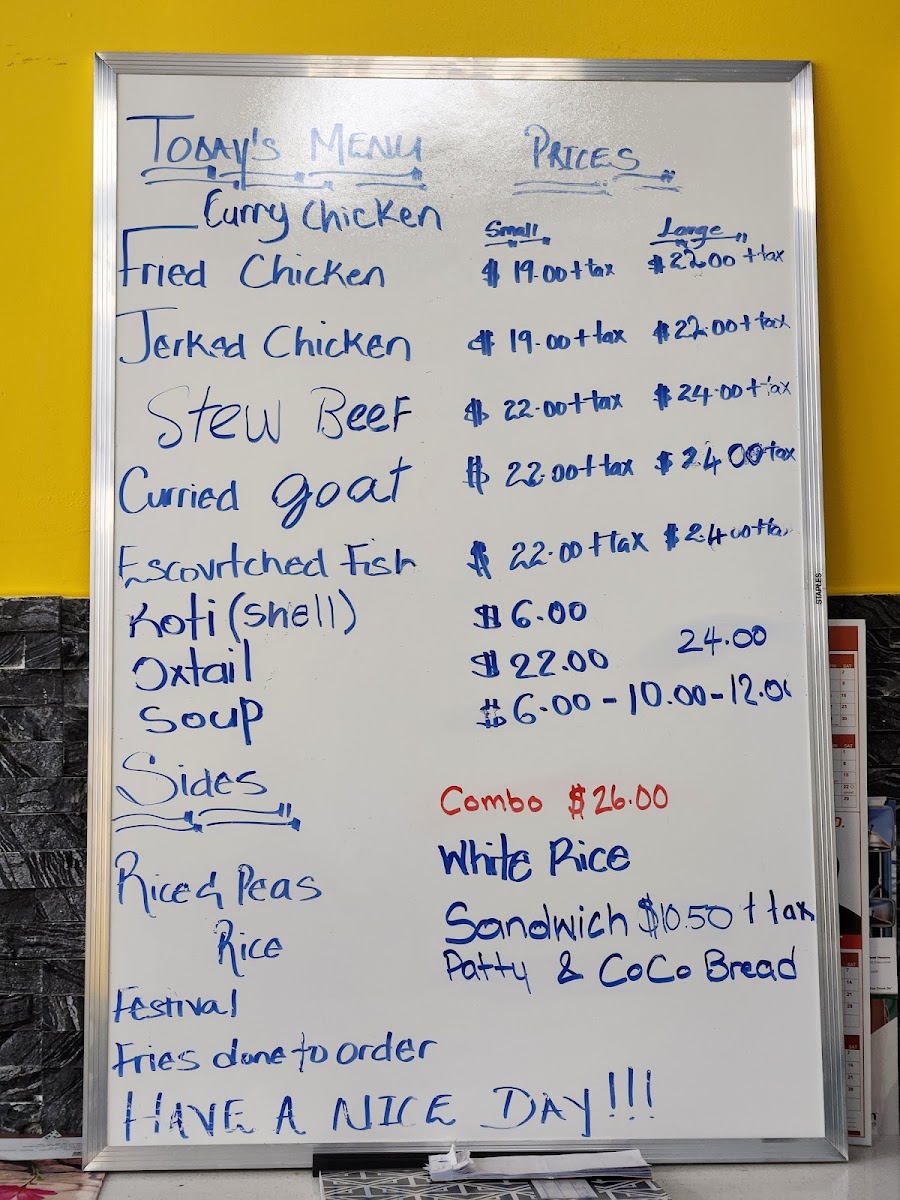 TODAY'S MENU PRICES
Curry Chicken
Small Large
Fried Chicken $ 19.00 + tax $ 22.00 + tax
Jerked Chicken $ 19.00 + tax $ 22.00 + tax
Stew Beef $ 22.00 + tax $ 24.00 + tax
Curried goat $ 22.00 + tax $ 24.00 + tax
Escovitched Fish $ 22.00 + tax $ 24.00 + tax
Roti (shell) $ 6.00
Oxtail $ 22.00 24.00
Soup $ 6.00 - 10.00 - 12.00
Sides
Combo $ 26.00
White Rice
Rice & Peas
Sandwich $10.50 + tax
Rice
Patty & CoCo Bread
Festival
Fries done to order
HAVE A NICE DAY!!!
STAPLES